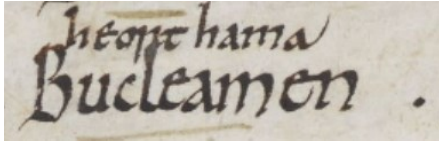 heort hama
Bucleamen .